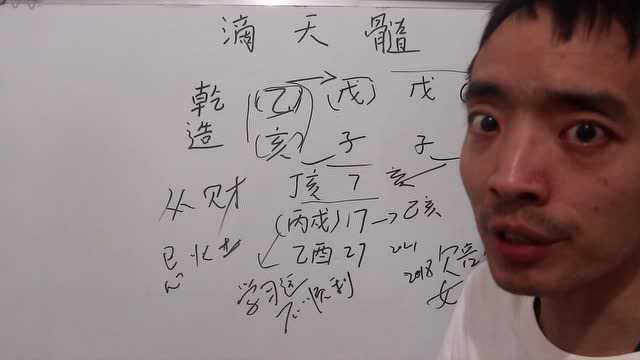 滴天髓
乾造 (乙) (戊) 戊
(亥) 子 子
从财 丁亥 7 亥
(丙戌) 17 → 乙亥
乙酉 27
学习运 2018 欠
不顺利 女